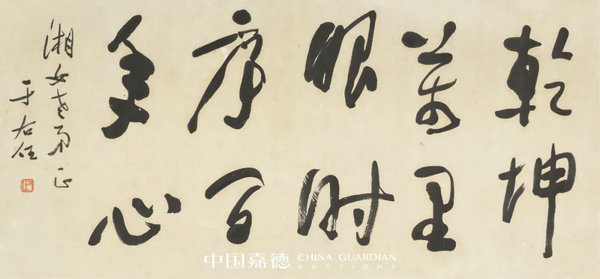 乾坤
萬里
眼時
序百
年心
湘女老弟正
于右任
中国嘉德 CHINA GUARDIAN
AUCTIONS